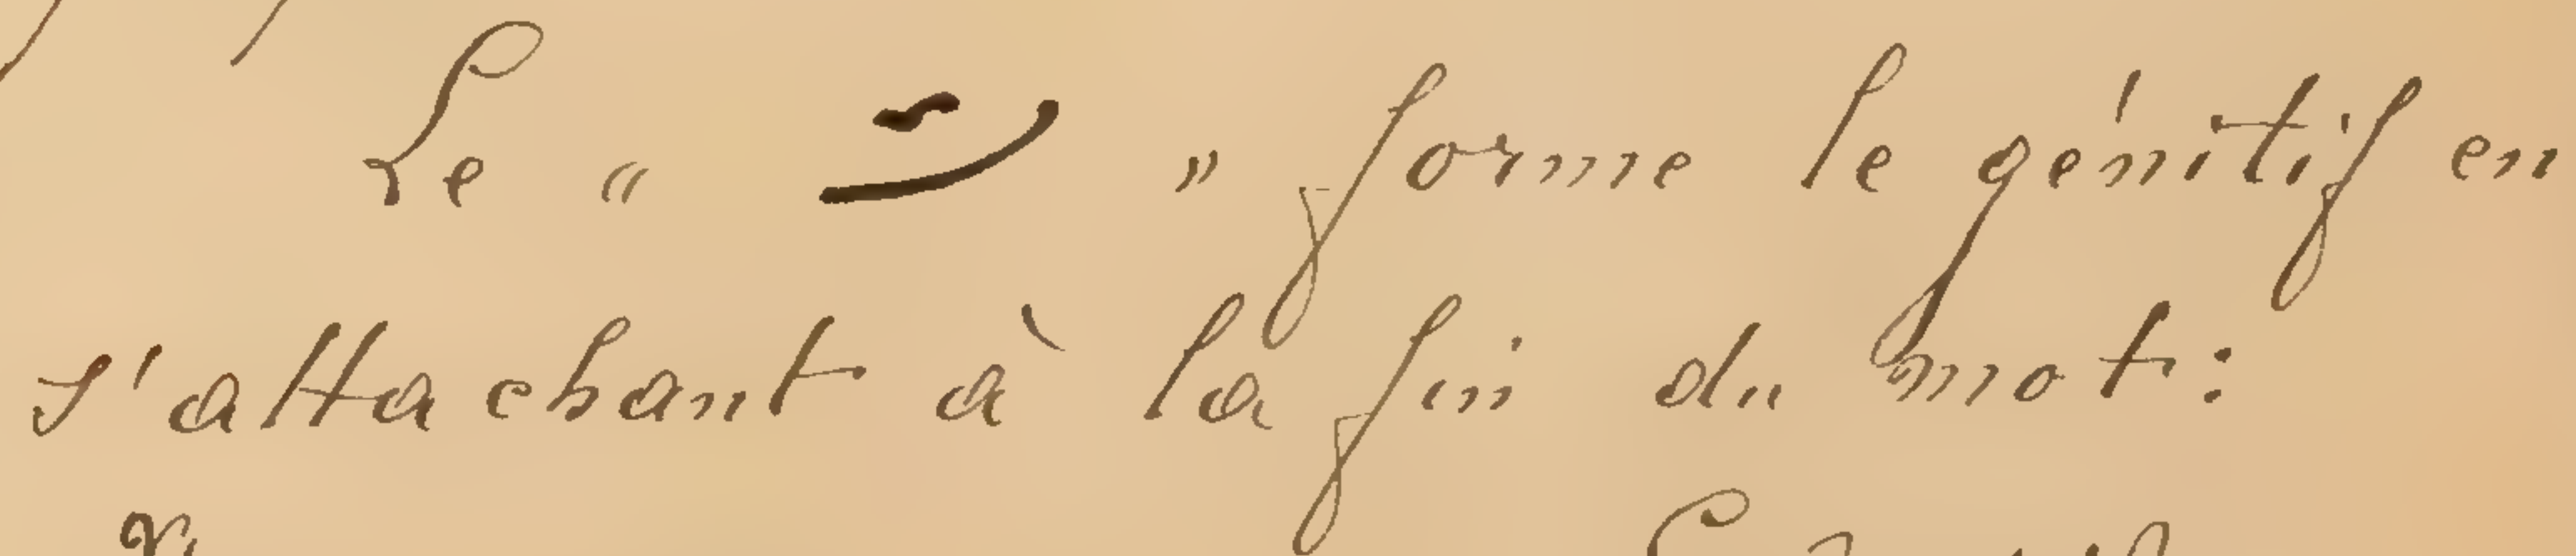 Le " ﺗ " forme le génitif en
s'attachant à la fin du mot: